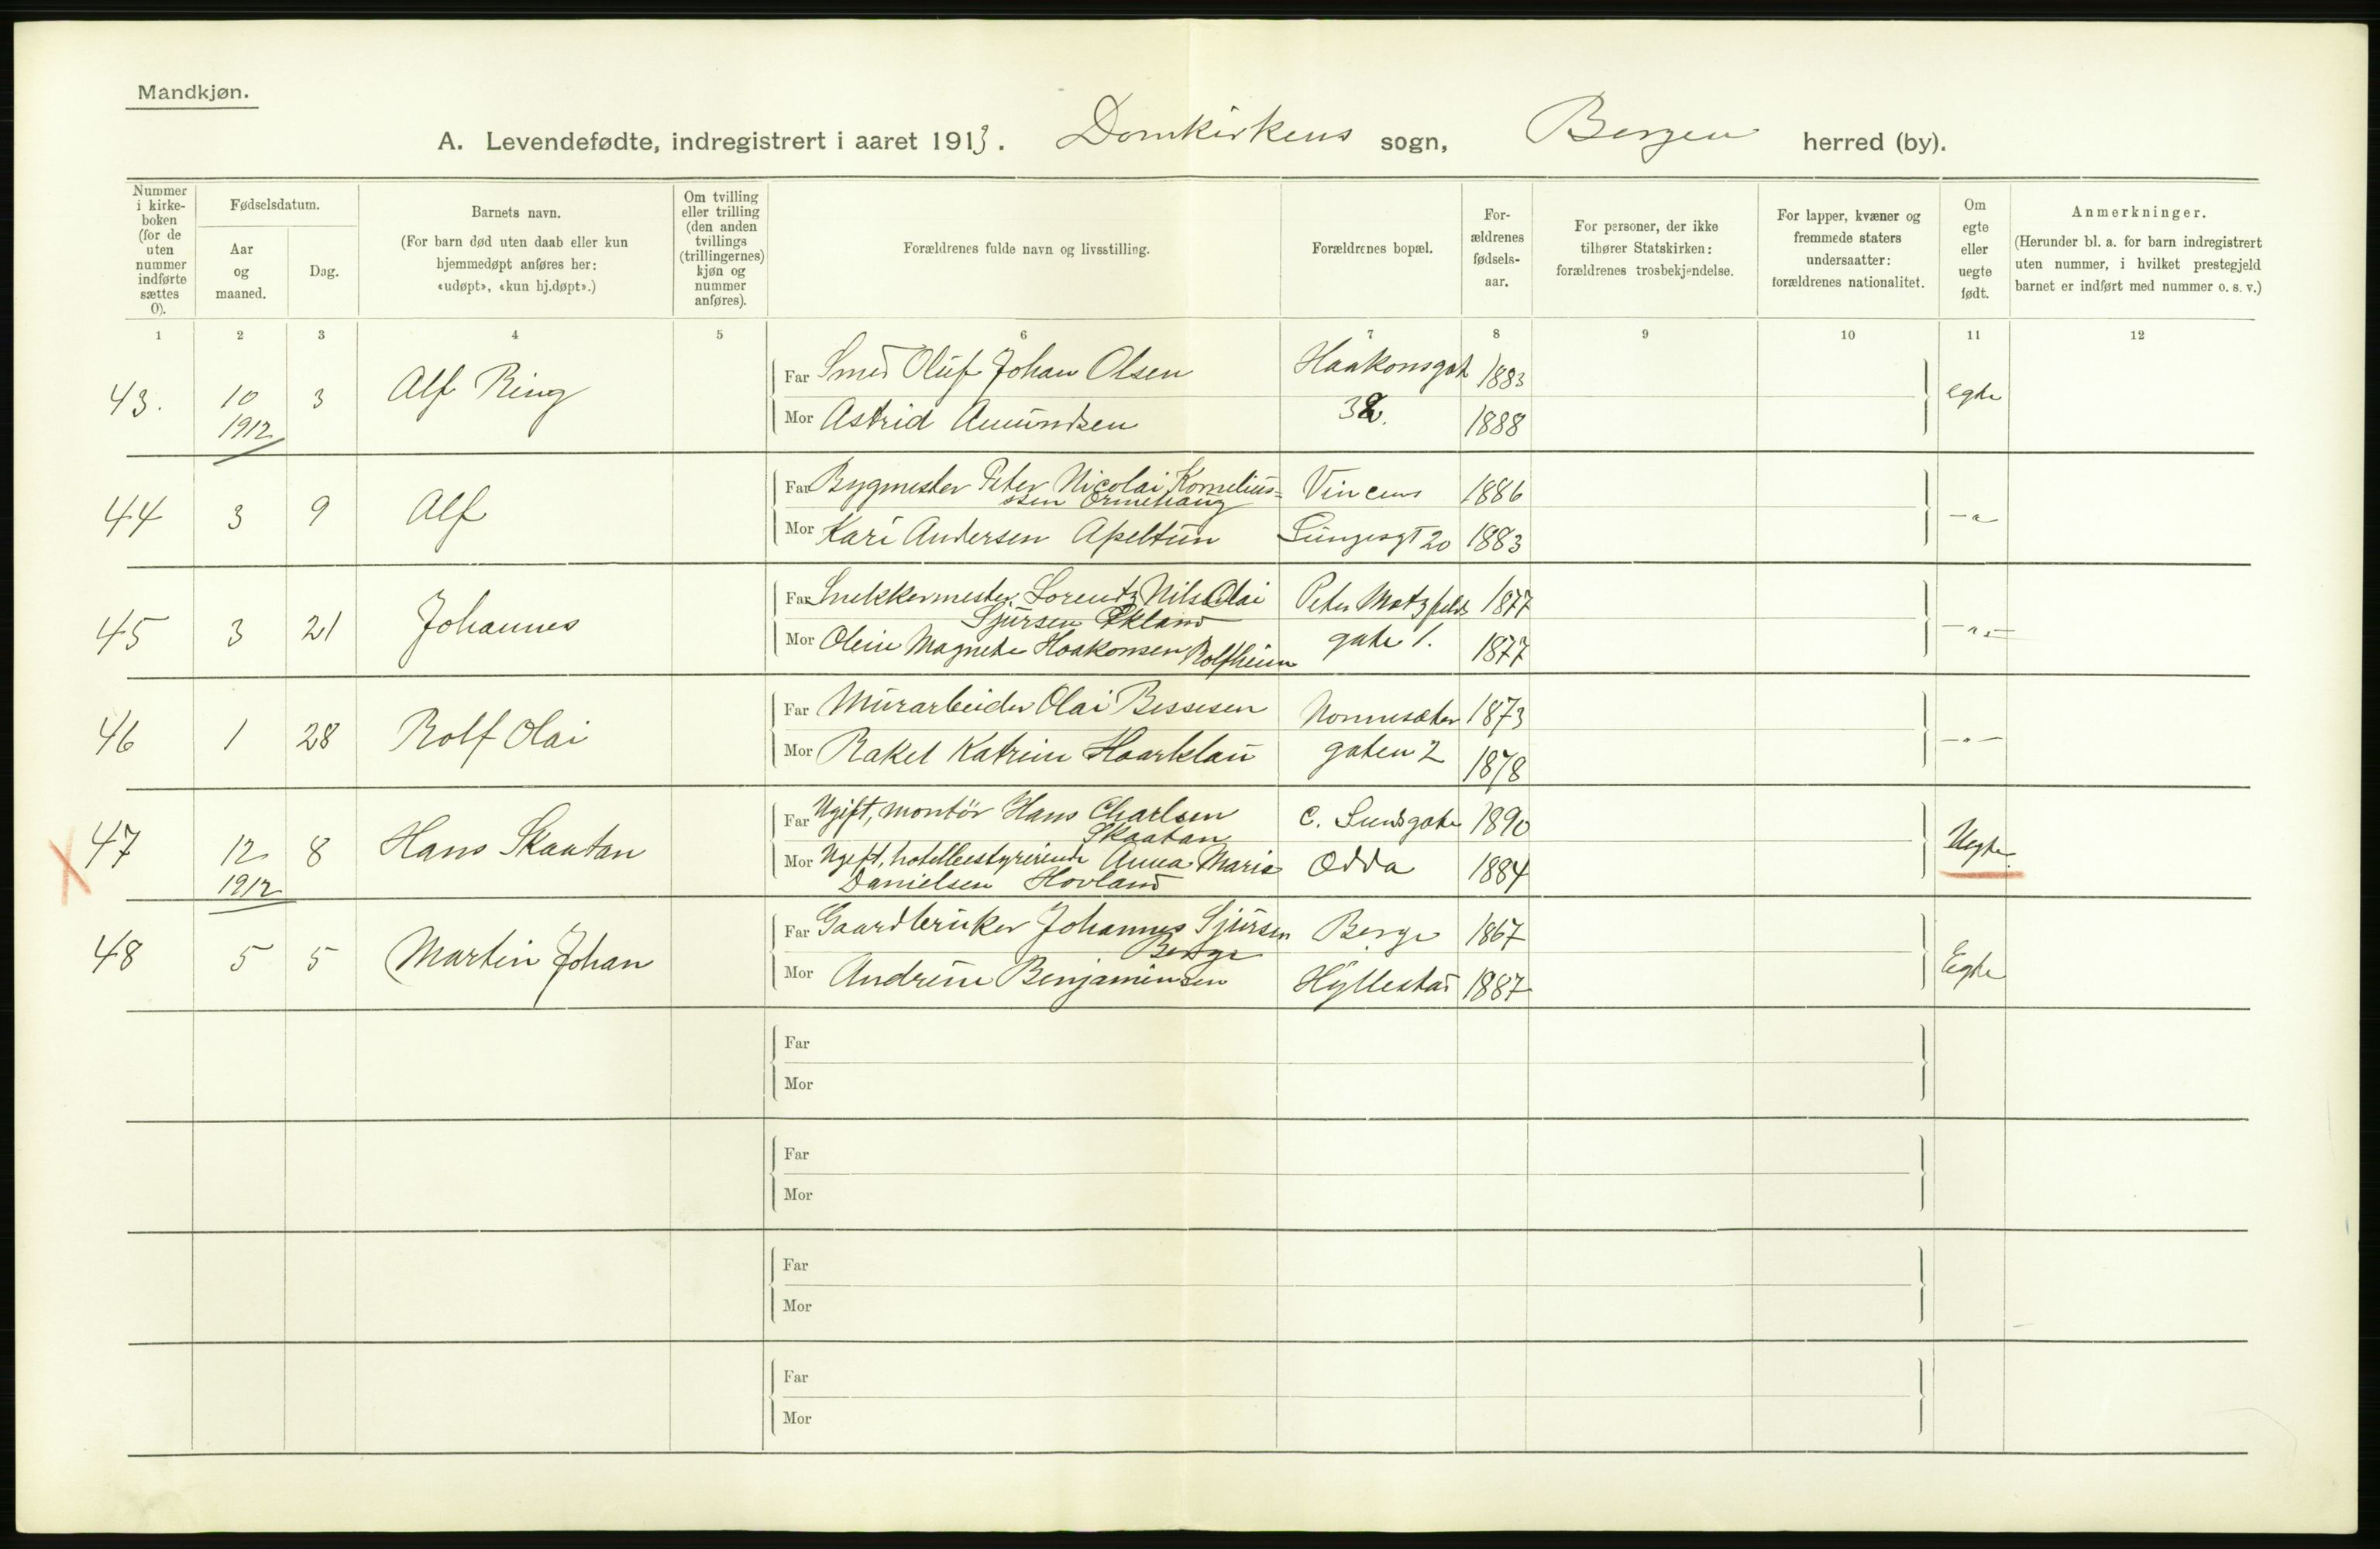 Mandkjøn.
A. Levendefødte, indregistrert i aaret 1913. Domkirkens sogn, Bergen herred (by).
Nummer i kirke-boken (for de uten nummer indførte sættes 0).
Fødselsdatum.
Aar og maaned.
Dag.
Barnets navn.
(For barn død uten daab eller kun hjemmedøpt anføres her: «udøpt», «kun hj.døpt».)
Om tvilling eller trilling (den anden tvillings (trillingernes) kjøn og nummer anføres).
Forældrenes fulde navn og livsstilling.
Forældrenes bopæl.
For-ældrenes fødsels-aar.
For personer, der ikke tilhører Statskirken: forældrenes trosbekjendelse.
For lapper, kvæner og fremmede staters undersaatter: forældrenes nationalitet.
Om egte eller uegte født.
Anmerkninger.
(Herunder bl. a. for barn indregistrert uten nummer, i hvilket prestegjeld barnet er indført med nummer o. s. v.)
1 2 3 4 5 6 7 8 9 10 11 12
43. 10 3 Alf Ring Far Smed Oluf Johan Olsen Haakonsgat 1883 egte
1912 Mor Astrid Amundsen 32. 1888
44 3 9 Alf Far Bygmester Peter Nicolai Kornelius=
ssen Ormehaug Vincens 1886 —"—
Mor Kari Andersen Apeltun Lungesgt 20 1883
45 3 21 Johannes Far Snekkermester Lorentz Nils Olai
Sjursen Økland Peter Motzfeldts 1877 —"—
Mor Oline Magnete Haakonsen Rolfheim gate 1. 1877
46 1 28 Rolf Olai Far Murarbeider Olai Bessesen Nonnesæter 1873 —"—
Mor Rakel Katrine Haarklau gaten 2 1878
47 12 8 Hans Skaatan Far Ugift, montör Hans Charlsen
Skaatan C. Sundsgate 1890 Uegte
1912 Mor Ugift, hotelbestyrerinde Anna Maria
Danielsen Hovland Odda 1884
48 5 5 Martin Johan Far Gaardbruker Johannes Sjursen
Berge Berge 1867 Egte
Mor Andrine Benjaminsen Hyllestad 1887
Far
Mor
Far
Mor
Far
Mor
Far
Mor